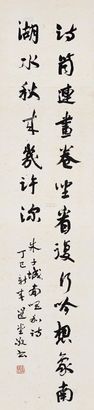 詩筒連畫卷坐看復行吟想象南
湖水秋來幾許深
朱子城南唱和詩
丁巳新春選堂